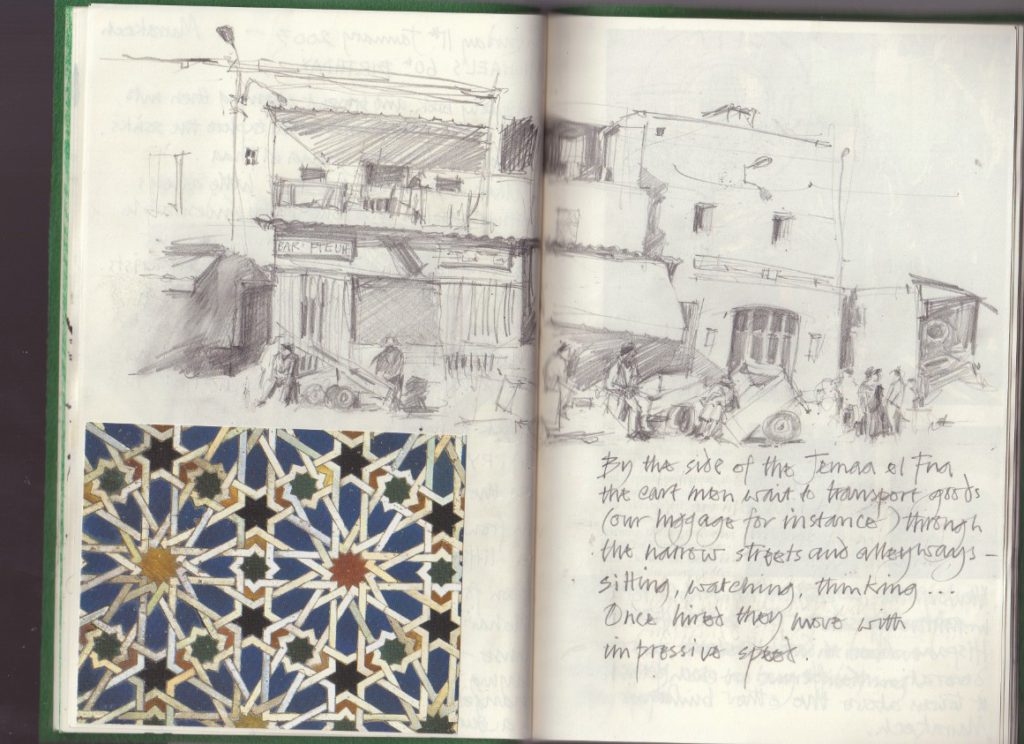 BAR
By the side of the Jemaa el Fna
the cart men wait to transport goods
(our luggage for instance) through
the narrow streets and alleyways –
sitting, watching, thinking ...
Once hired they move with
impressive speed.